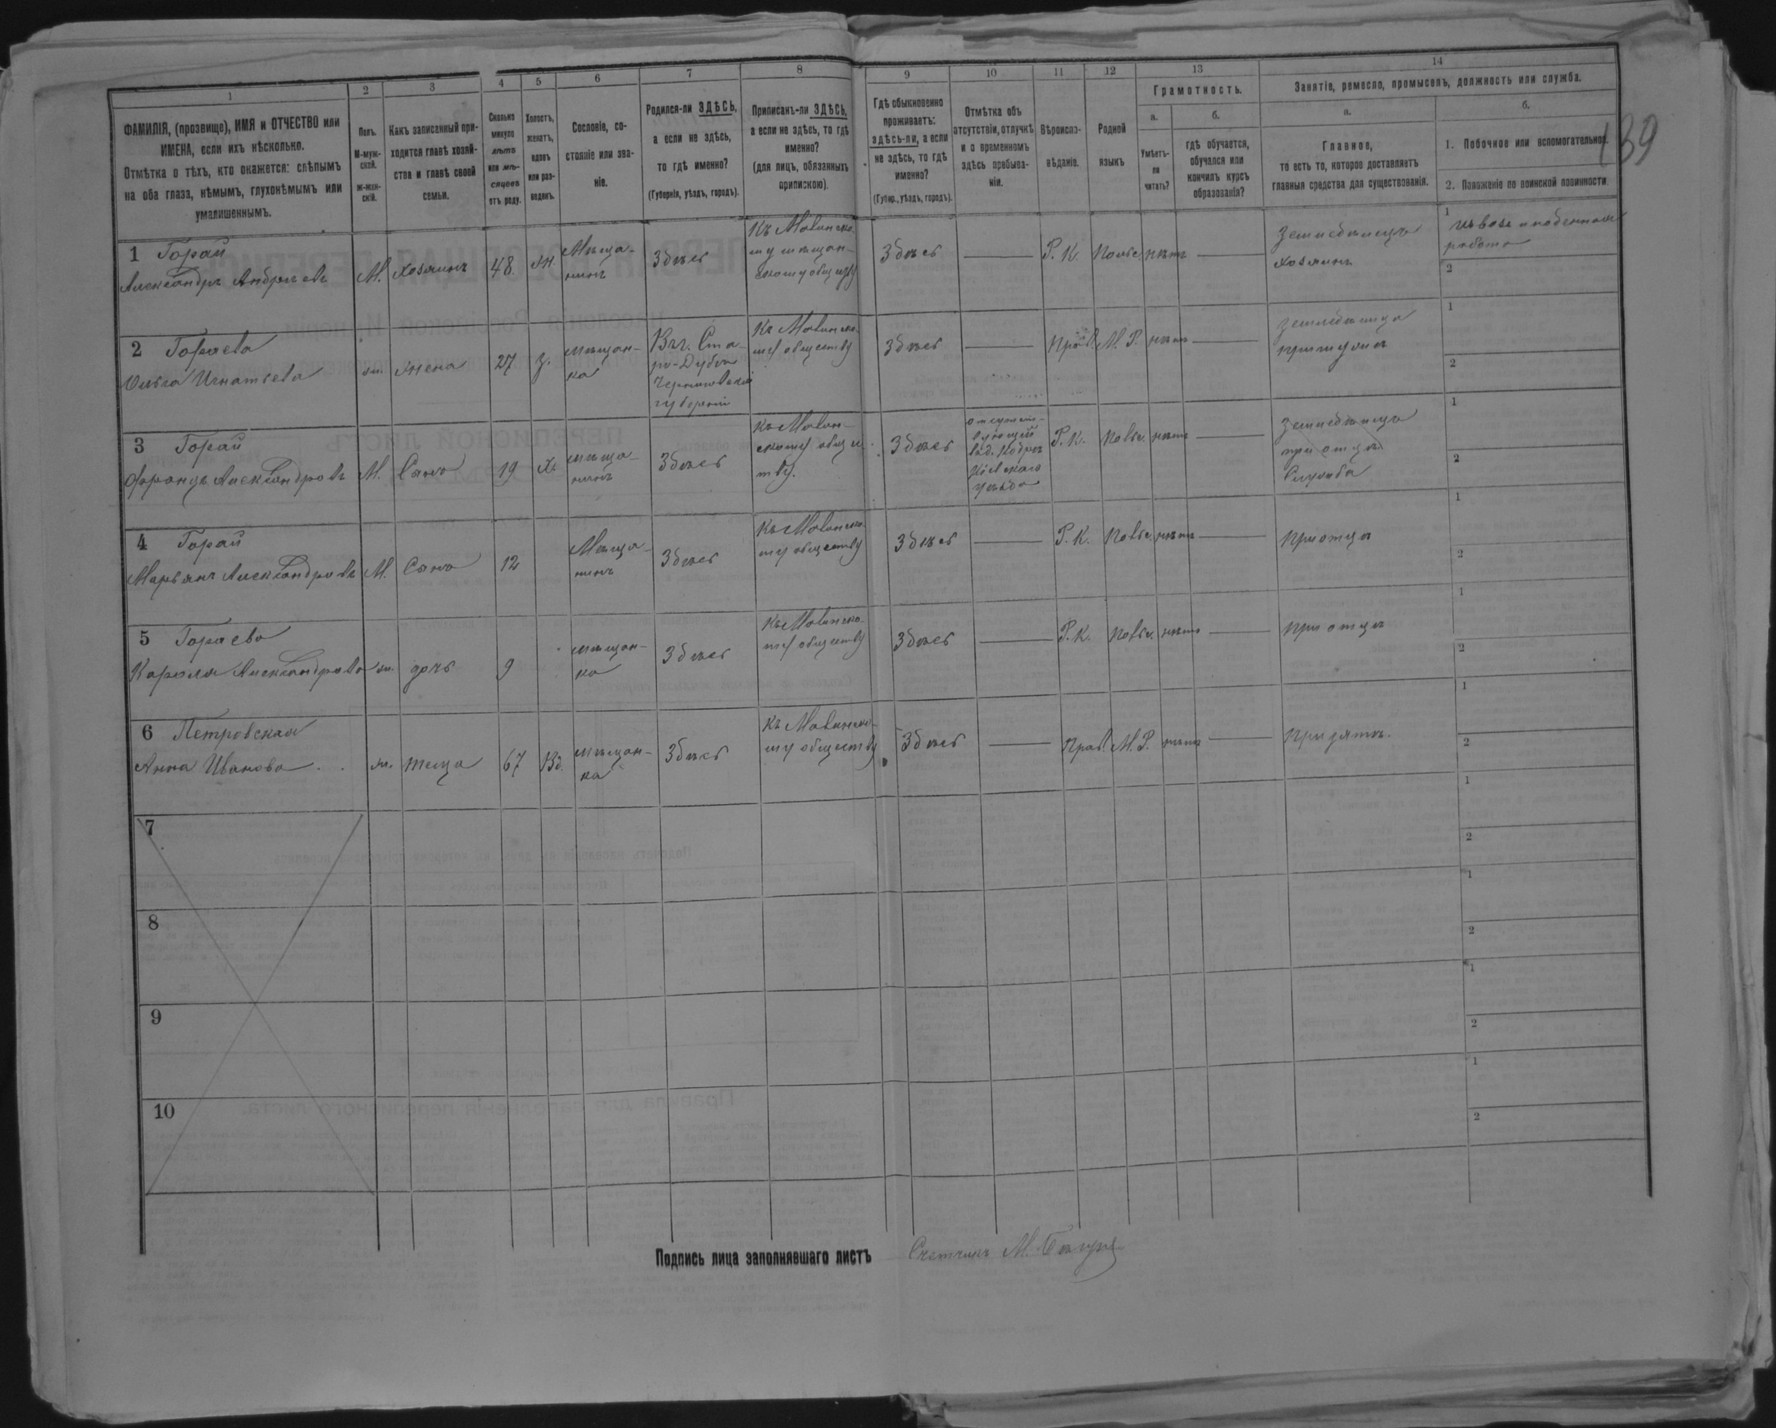 139
1 2 3 4 5 6 7 8 9 10 11 12 13 14
ФАМИЛІЯ, (прозвище), ИМЯ и ОТЧЕСТВО или
ИМЕНА, если ихъ нѣсколько.
Отмѣтка о тѣхъ, кто окажется: слѣпымъ
на оба глаза, нѣмымъ, глухонѣмымъ или
умалишеннымъ.
Полъ.
М-муж-
ской.
ж-жен-
скій.
Какъ записанный при-
ходится главѣ хозяй-
ства и главѣ своей
семьи.
Сколько
минуло
лѣтъ
или мѣ-
сяцевъ
отъ роду.
Холостъ,
женатъ,
вдовъ
или раз-
веденъ.
Сословіе, со-
стояніе или зва-
ніе.
Родился-ли ЗДѢСЬ,
а если не здѣсь,
то гдѣ именно?
(Губернія, уѣздъ, городъ).
Приписанъ-ли ЗДѢСЬ,
а если не здѣсь, то гдѣ
именно?
(для лицъ, обязанныхъ
припискою).
Гдѣ обыкновенно
проживаетъ:
здѣсь-ли, а если
не здѣсь, то гдѣ
именно?
(Губер., уѣздъ, городъ).
Отмѣтка объ
отсутствіи, отлучкѣ
и о временномъ
здѣсь пребыва-
ніи.
Вѣроиспо-
вѣданіе.
Родной
языкъ
Грамотность.
а.
Умѣетъ-
ли
читать?
б.
гдѣ обучается,
обучался или
кончилъ курсъ
образованія?
Занятіе, ремесло, промыселъ, должность или служба.
а.
Главное,
то есть то, которое доставляетъ
главныя средства для существованія.
б.
1. Побочное или вспомогательное.
2. Положеніе по воинской повинности
1 Горай
Александръ Андреевъ
М.
хозяинъ
48
Ж
Мѣща-
нинъ
Здѣсь
Къ
му мѣщан-
скому
Здѣсь
Р. К.
Польс.
нѣтъ
Земледѣлецъ
хозяинъ
1
работа
2
2 Гораева
Ольга Игнатьева
ж.
жена
27
З.
мѣщан-
ка
Въ г. Ста-
ро-Дубѣ
Черниговской
губерніи
Къ
му обществу
Здѣсь
Прав.
М. Р.
нѣтъ
Земледѣлица
при мужѣ
1
2
3 Горай
Францъ Александровъ
М.
Сынъ
19
Х.
мѣща-
нинъ
Здѣсь
Къ
скому общес
тву.
Здѣсь
уѣзда
Р. К.
Польс.
нѣтъ
Земледѣлецъ
при отцѣ
Служба
1
2
4 Горай
Марьянъ Александровъ
М.
Сынъ
12
Мѣща-
нинъ
Здѣсь
Къ
му обществу
Здѣсь
Р. К.
Польс.
нѣтъ
При отцѣ
1
2
5 Гораева
Кароля Александрова
ж.
дочь
9
мѣщан-
ка
Здѣсь
Къ
му обществу
Здѣсь
Р. К.
Польс.
нѣтъ
При отцѣ
1
2
6 Петровская
Анна Иванова
ж.
теща
67
Вд.
мѣщан-
ка
Здѣсь
Къ
му обществу
Здѣсь
Прав.
М. Р.
нѣтъ
При зятѣ.
1
2
7
1
2
8
1
2
9
1
2
10
1
2
Подпись лица заполнявшаго листъ Счетчикъ М.